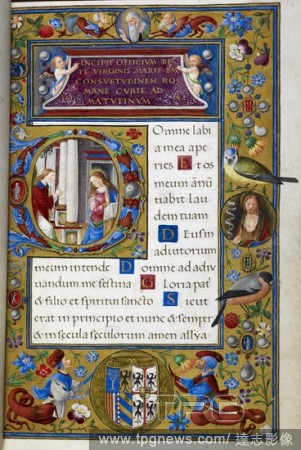 INCIPIT OFFICIVM BE
TE VIRGINIS MARIE SM
CONSVETVDINEM RO
MANE CVRIE AD
MATVTINVM
Omne labi
a mea ape
ries Et os
meum ānū
tiabit lau
dem tuam
Deus in
adiutorium
meum intende Domne ad adiu
uandum me festina Gloria pat
& filio et spiritui sancto Sicut
erat in principio et nunc & semper
& in secula seculorum amen allya
TPG
www.tpgnews.com/ 達志影像